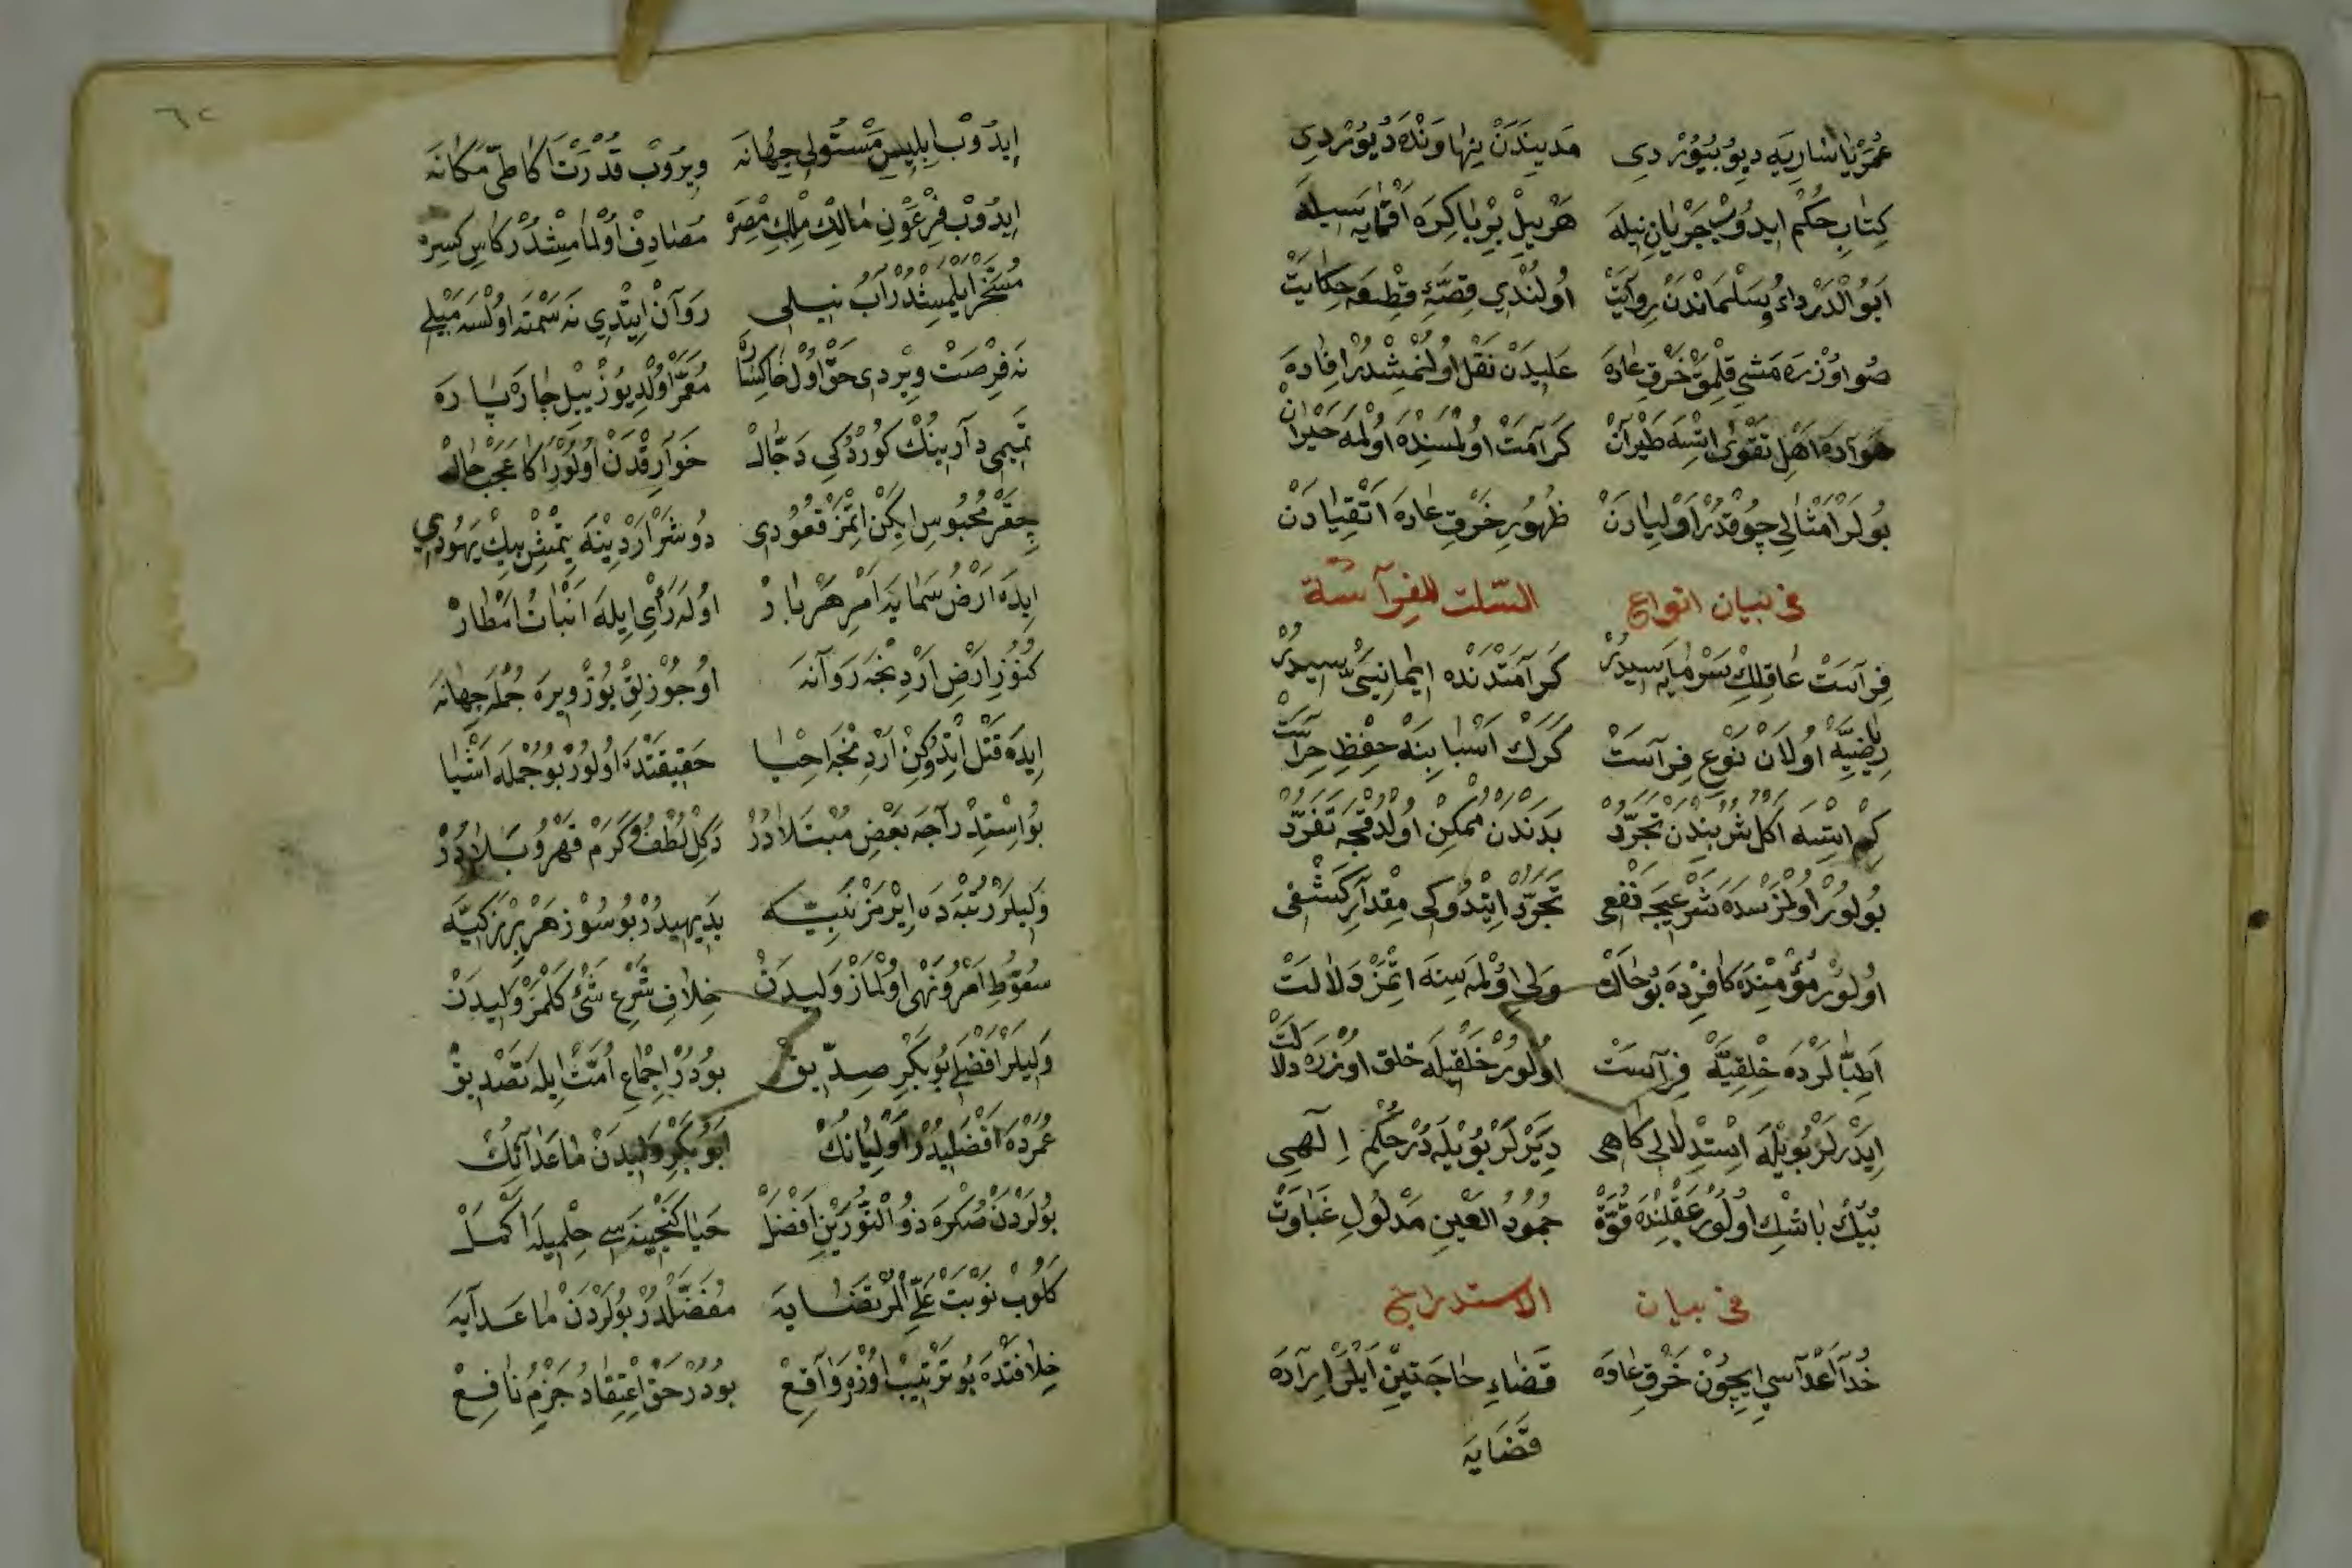 عُمَرْ يَا سَارِيَه دِيُو بُيُوْرْدِى مَدِينَدَنْ نِهَاوَنْدَه دُيُوْرْدِى
كِتَابِ حُكْم اِيدُوبْ جَرْيَانِ نِيلَه هَرْ يِيلْ بِرْ بَاكِرَه اَقْمَايَه سَيلَه
اَبُو الْدَرْدَاءُ وسَلْمَانْدَنْ رِوَايَتْ اُولُنْدِي قِصَّهٔ قِطْعَه حِكَايَتْ
صُو اوُزْرَه مَشيِ قِلْمَقْ خَرْقِ عَادَه عَلِيدَنْ نَقْل اوُلُنْمِشْدُرْ اِفَادَه
هَوَادَه اَهْلِ تَقْوٰى اِتْسَه طَيْرَانْ كَرَامَتْ اوُلْمَسِنْدَه اوُلْمَه حَيْرَانْ
بُولَرْ اَمْثَالِي چُوقْدُرْ اَوْلِيَادَنْ ظُهُورِ خَرْقِ عَادَه اَتْقِيَادَنْ
فى بيان انواع الثلث للفراسة
فِرَاسَتْ عَاقِلِكْ سَرْمَايَه سِيدُرْ كَرَامَتْدَنْدَه ايمَانِيسِى سِيدُرْ
رِيَاضِيَّه اوُلَانْ نَوْعِ فِرَاسَتْ كَرَكْ اَسْبَابِنَه حِفْظِ حِرَاسَتْ
كِم اِيتْسَه اَكْل شُرْبِندَنْ تَجَرُّدْ بَدَنْدَن مُمْكِنْ اوُلْدُقْجَه تَفَرُّدْ
بُولوُرْ اوُلْمَزْسَدَه شَرْعِيجَه نَفْعِى تَجَرُّدْ اِيتْدُوكِى مِقْدَارِ كَشْفِى
اوُلوُرْ مُؤْمِنْدَه كَافِرْدَه بُو حَالَتْ وَلِى اوُلْمَه سِينَه اِتْمَزْ دَلَالَتْ
اَطِبَّالَرْدَه خِلْقِيَّه فِرَاسَتْ اوُلوُرْ خَلْقِيلَه خلق اوُزْرَه دلالَتْ
اِيدَرْلَرْ بُويْلَه اِسْتِدْلَالِى كَاهِى دِيَرْلَرْ بُويْلَه دُرْ حُكْمِ اِلٰهِى
بُيُكْ بَاشْكْ اوُلوُرْ عَقْلِنْدَه قُوَّة جُمُودُ الْعَيْنِ مَدْلُولِ غَبَاوَتْ
فى بيان الاستدراج
خُدَا اَعْدَاسِي اِيچُونْ خَرْقِ عَادَه قَضَاءِ حَاجَتِيچّنْ اَيلَرْ اِرَادَه
قَضَايَه
٦٢
اِيدُوبْ اِبْلِيسِ مُسْتَوْلِى جِهَانَه وِيرُوبْ قُدْرَتْ اَكَا طَىِّ مَكَانَه
اِيدُوبْ فِرْعَوْنِ مَالِكْ مُلْكِ مِصْرَه مُصَادِفْ اوُلْمَامِشْدُرْ كَاسِ كَسِرَه
مُسَخَّرْ اَيْلَمِشْدُرْ آبُ نِيلِى رَوَانْ اِيتْدِي نَه سَمْتَه اوُلْسَه مَيْلِي
نَه فِرْصَتْ وِيرْدِى حَقْ اوُل خَاكْسَارَه مُعَمَّرْ اوُلْدِي يُوزْ يِيلْ چَارَه پَارَه
تَمِيمِى دَارِينُكْ كُورْدُكِى دَجَّالْ خَوَارِقْدَنْ اوُلوُرْ اَكَا عَجَبْ حَالْ
چِقَرْ مَحْبُوسِ اِيكَنْ اِتْمَزْ قُعُودِى دُوشَرْ اَرْدِينَه يَتْمِشْ بِيكْ يَهُودِي
اِيدَه اَرْضُ سَمَايَه اَمِرِ هَرْ بَارْ اوُلَه رَأْي اِيلَه اَنْبَاتُ اَمْطَارْ
كُنُوزِ اَرْضِ اَرْدِنْجَه رَوَانَه اوُجُوزْلِقْ يُوزْ وِيرَه جُمْلَه جِهَانَه
اِيدَه قَتْل اِتْدُوكِنْ اَرْدِنْجَه اِحْيَا حَقِيقَتْدَه اوُلوُرْ بُو جُمْلَه اَشْيَا
بُو اِسْتِدْرَاجَه بَعْضِ مُبْتَلَادُرْ دَكِلْ لُطْفُ وكَرَمْ قَهْرُ وبَلَادُرْ
وَلِيلَرْ رُتْبَه دَه اِيرْمَزْ نَبِيَّه بَدِيهِيدُرْ بُو سُوزْ هَرْ بِرْ زَكِيَّه
سُقُوطِ اَمْرُ ونَهْى اوُلْمَازْ وَلِيدَنْ خِلَافِ شَرْعِ شَىْ كَلْمَزْ وَلِيدَنْ
وَلِيلَرْ اَفْضَلِى بُوبَكْرِ صِدِّيقْ بُودُرْ اِجْمَاعِ اُمَّتْ اِيلَه تَصْدِيقْ
عُمَرْدَه اَفْضَلِيدُرْ اَوْلِيَانُكْ اَبُو بَكْرِ وَلِيدَنْ مَاعَدَانُكْ
بُولَرْدَنْ صُكْرَه ذُو النُّورَيْنِ اَفْضَلْ حَيَا كَنْجِينَه سِى حِلْمِيلَه اَكْمَلْ
كَلُوبْ نَوْبَتْ عَلِيِّ الْمُرْتَضَايَه مُفَضَّلْدُرْ بُولَرْدَنْ مَاعَدَايَه
خِلَافَتْدَه بُو تَرْتِيبْ اوُزْرَه وَاقِعْ بُودُرْ حَقْ اِعْتِقَادُ جَزْمِ نَافِعْ